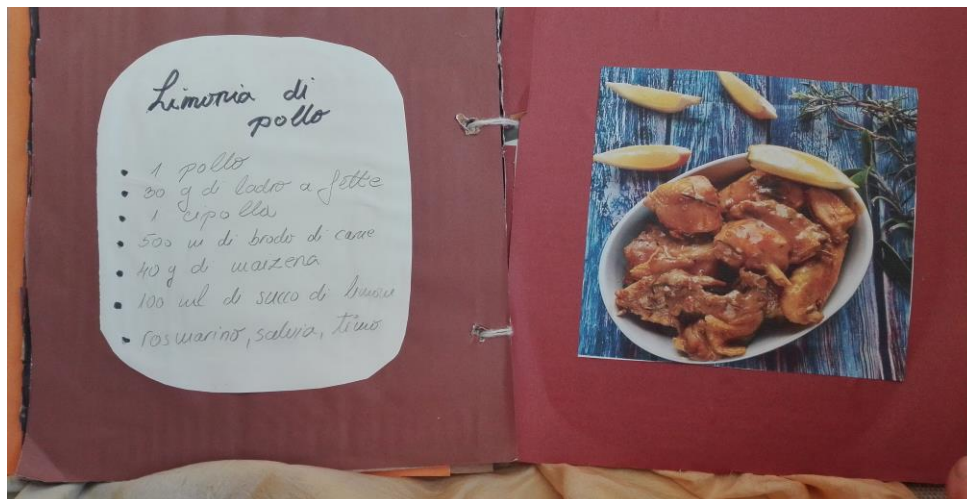 Limonia di
pollo
• 1 pollo
• 30 g di ladro a fette
• 1 cipolla
• 500 ml di brodo di carne
• 40 g di maizena
• 100 ml di succo di limone
• rosmarino, salvia, timo